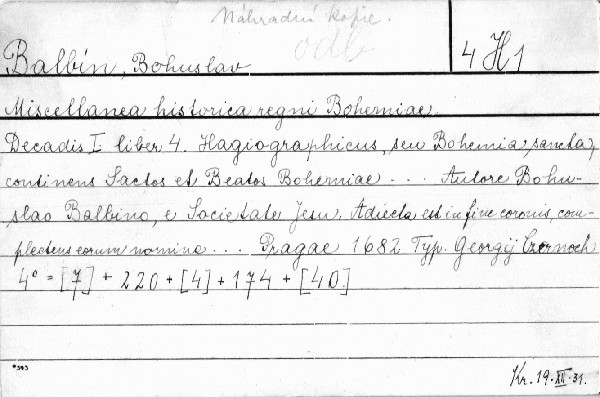 Náhradní kopie.
odb
Balbín, Bohuslav
4 H 1
Miscellanea historica regni Bohemiae.
Decadis I liber 4. Hagiographicus, seu Bohemia sancta,
continens Sactos et Beatos Bohemiae . . . Autore Bohu-
slao Balbino, e Societate Jesu. Adiecta est in fine coronis, com-
plectens eorum nomina . . . Pragae 1682 Typ. Georgij Czernoch
4° = [7] + 220 + [4] + 174 + [40]
Kr. 19. XII. 31.